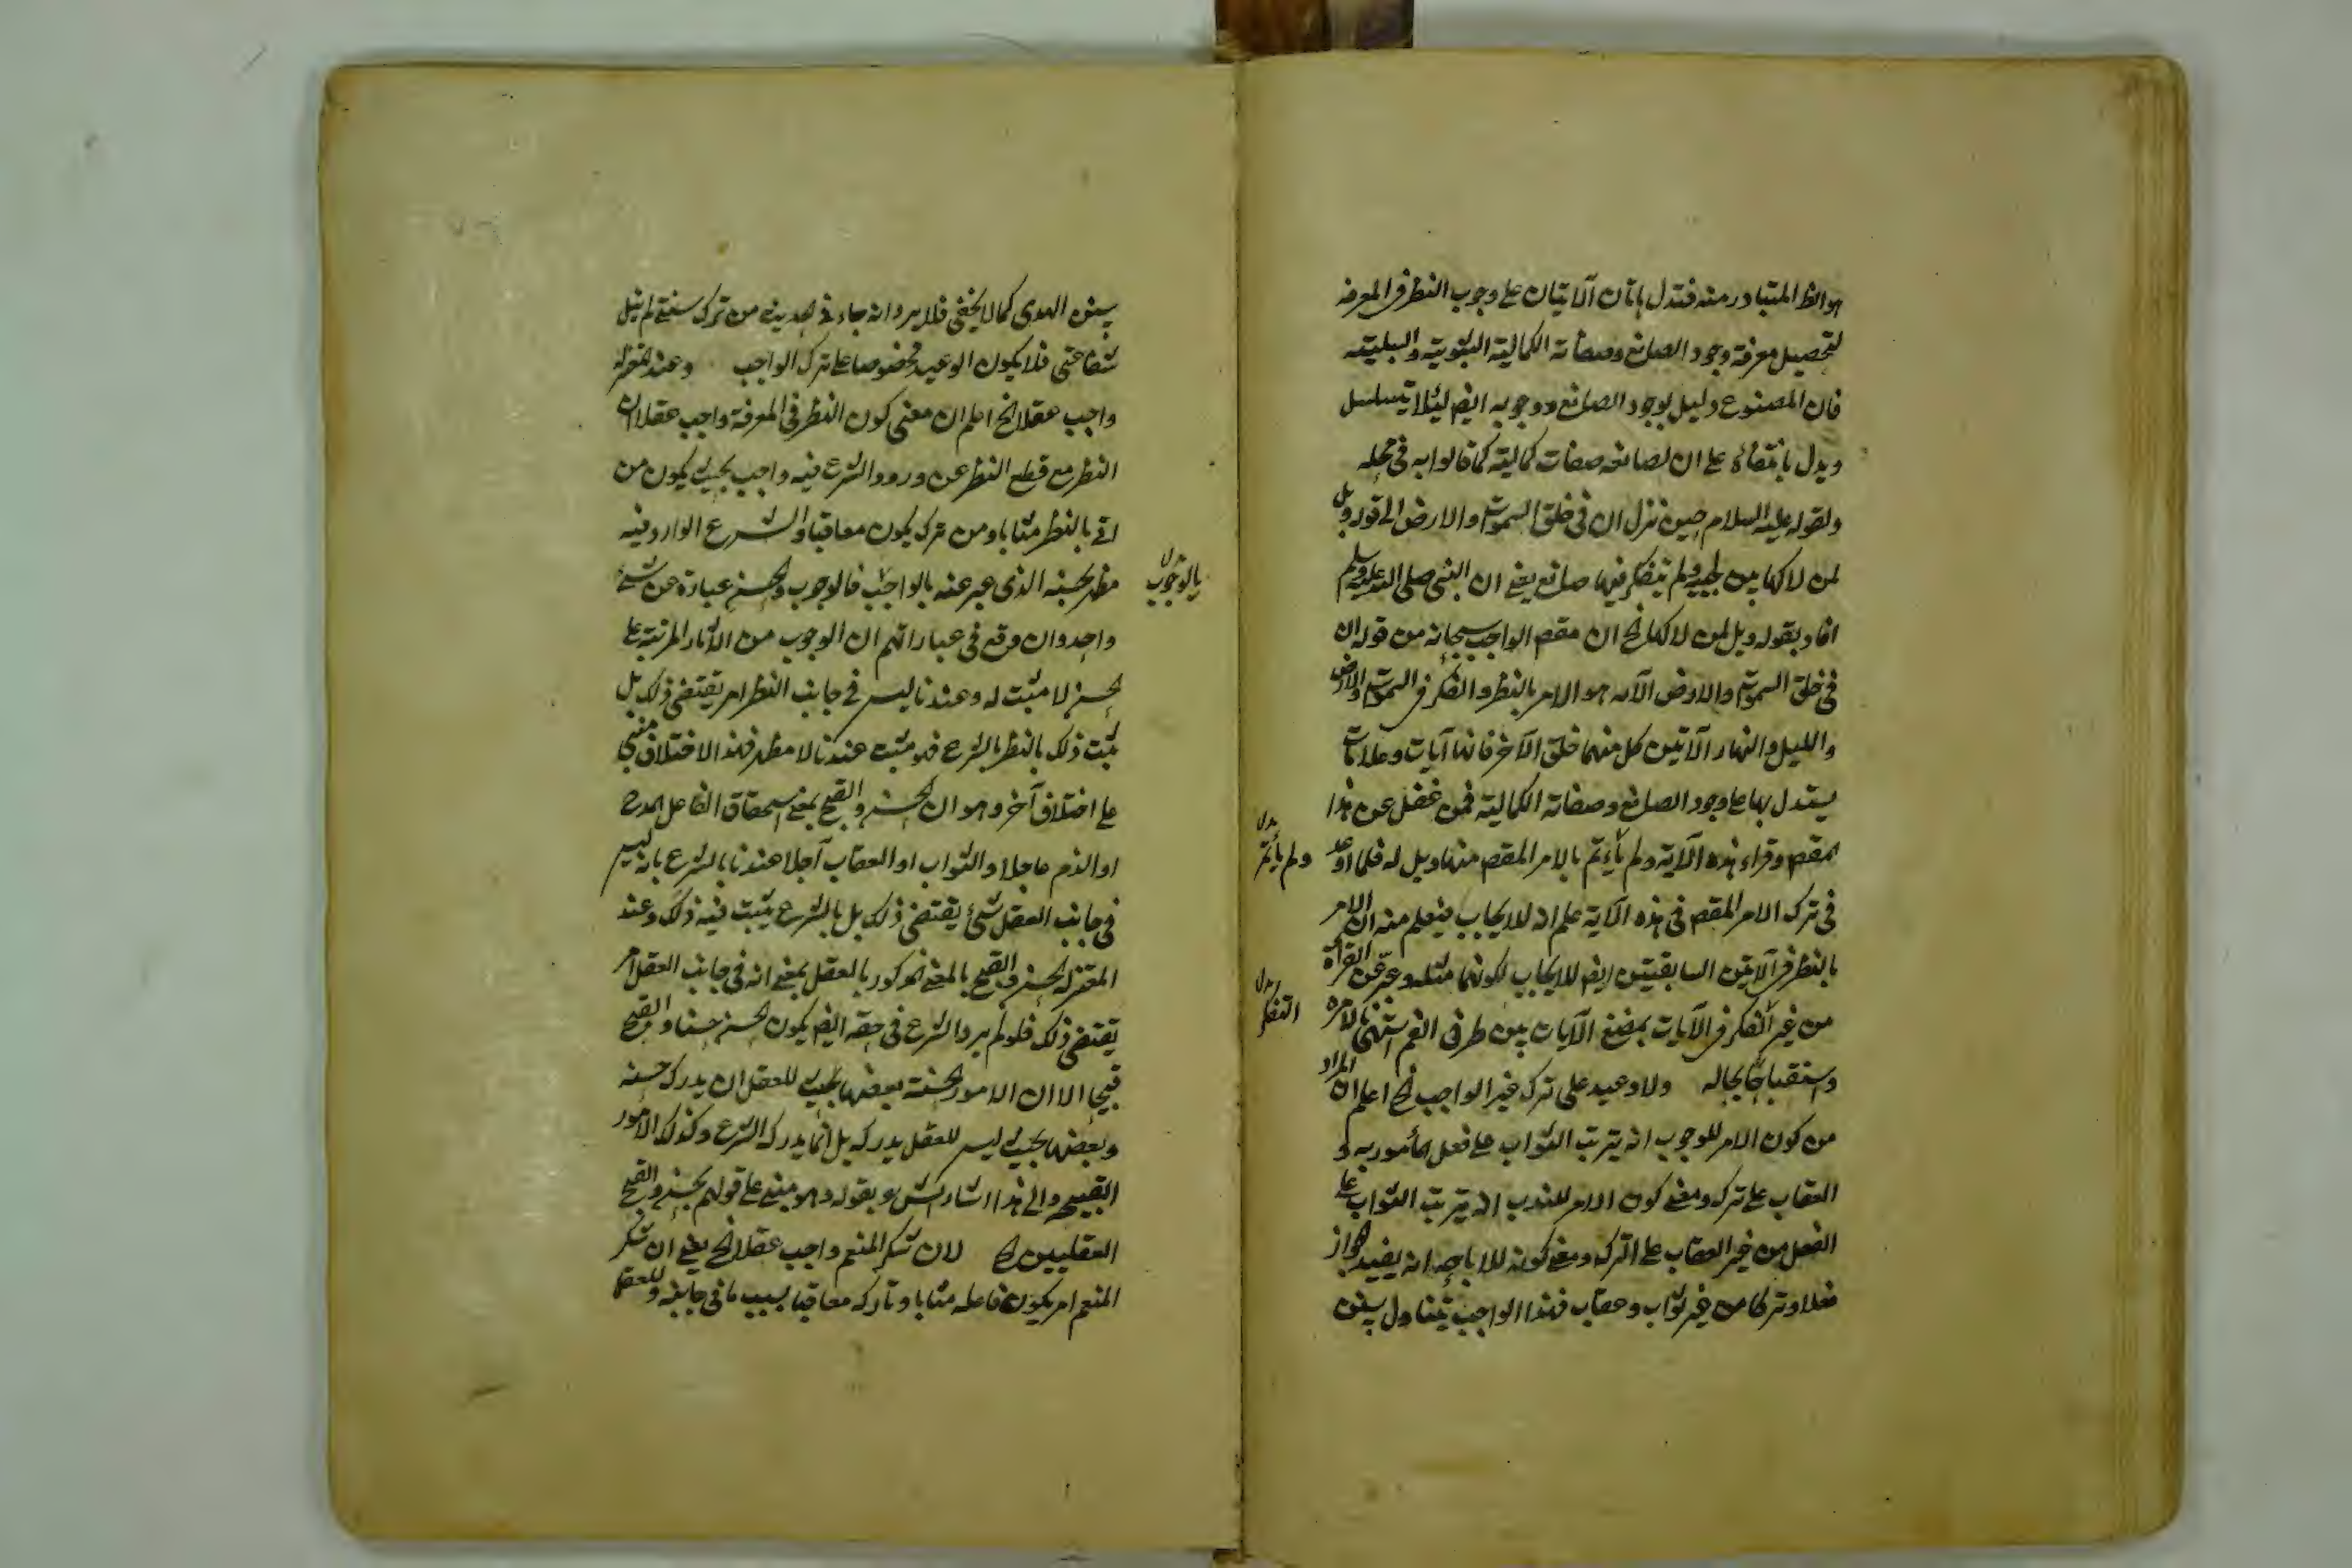 هو الظ المتبادر منه فتدل هاتان الآيتان على وجوب النظر فى المعرفه
لتحصيل معرفة وجود الصانع وصفاته الكمالية الثبوتية والسلبيته
فان المصنوع دليل لوجود الصانع ووجوبه ايض لئلا يتسلسل
ويدل باتقانه على ان لصانعه صفات كمالية كما قالوا به فى محله
ولقوله عليه السلام حين نزل ان فى خلق السموات والارض الى قوله ويل
لمن لاكها بين لحييه ولم يتفكر فيها صانع يعنى ان النبى صلى الله عليه وسلم
افاد بقوله ويل لمن لاكها الخ ان مقصد الواجب سبحانه من قوله ان
فى خلق السموات والارض الآيه هو الامر بالنظر والتفكر فى السموات والارض
والليل والنهار الآتيين كل منهما خلق الآخر فانها آيات وعلامات
يستدل بها على وجود الصانع وصفاته الكمالية فمن غفل عن هذا
المقصد وقراء هذه الآية ولم يأتم بالامر المقصد منها ويل له فلما اوعد
ولم يأتمر بدل
فى ترك الامر المقصد فى هذه الآية علم انه للايجاب فيعلم منه ان الامر
بالنظر فى الآيتين السابقتين ايض للايجاب لكونهما مثله وعبر عن القرأة
من غير التفكر فى الآيات بمضغ الآيات بين طرفى الفم استهجانا لامره
التفكر بدل
واستقباحا لحاله ولا وعيد على ترك غير الواجب الخ اعلم ان المراد
من كون الامر للوجوب انه يترتب الثواب على فعل المأمور به و
العقاب على تركه ومعنى كون الامر للندب انه يترتب الثواب على
الفعل من غير العقاب على الترك ومعنى كونه للاباحه انه يفيد الجواز
فعلا وتركا من غير ثواب وعقاب فهذا الواجب يتناول سنن
سنن الهدى كما لا يخفى فلا يرد انه جاء فى الحديث من ترك سنتى لم ينل
شفاعتى فلا يكون الوعيد مخصوصا على ترك الواجب وعند المعتزلة
واجب عقلا الخ اعلم ان معنى كون النظر فى المعرفة واجب عقلا ان
النظر مع قطع النظر عن ورود الشرع فيه واجب بحيث يكون من
اتى بالنظر مثابا ومن ترك يكون معاقبا والشرع الوارد فيه
مظهر لحسنه الذى عبر عنه بالواجب فالوجوب والحسن عبارة عن شئ
بالوجوب بدل
واحد وان وقع فى عباراتهم ان الوجوب من الآثار المرتبة على
الحسن لا مثبت له وعندنا ليس فى جانب النظر امر يقتضى ذلك بل
يثبت ذلك بالنظر بالشرع فهو مثبت عندنا لا مظهر فهذا الاختلاف مبنى
على اختلاف آخر وهو ان الحسن والقبح بمعنى استحقاق الفاعل المدح
او الذم عاجلا والثواب او العقاب آجلا عندنا بالشرع بانه ليس
فى جانب العقل شئ يقتضى ذلك بل بالشرع يثبت فيه ذلك وعند
المعتزلة الحسن والقبح بالمعنى المذكور بالعقل بمعنى انه فى جانب العقل امر
يقتضى ذلك فلو لم يرد الشرع فى حقه ايض يكون الحسن حسنا والقبح
قبيحا الا ان الامور الحسنة بعضها بحيث للعقل ان يدرك حسنه
وبعضها بحيث ليس للعقل يدركه بل انما يدرك الشرع وكذلك الامور
القبيحة والى هذا اشار الش بقوله وهو مبنى على قولهم بحسن والقبح
العقليين الخ لان شكر المنعم واجب عقلا الخ يعنى ان شكر
المنعم امر يكون فاعله مثابا وتاركه معاقبا بسبب ما فى جانبه وللعقل